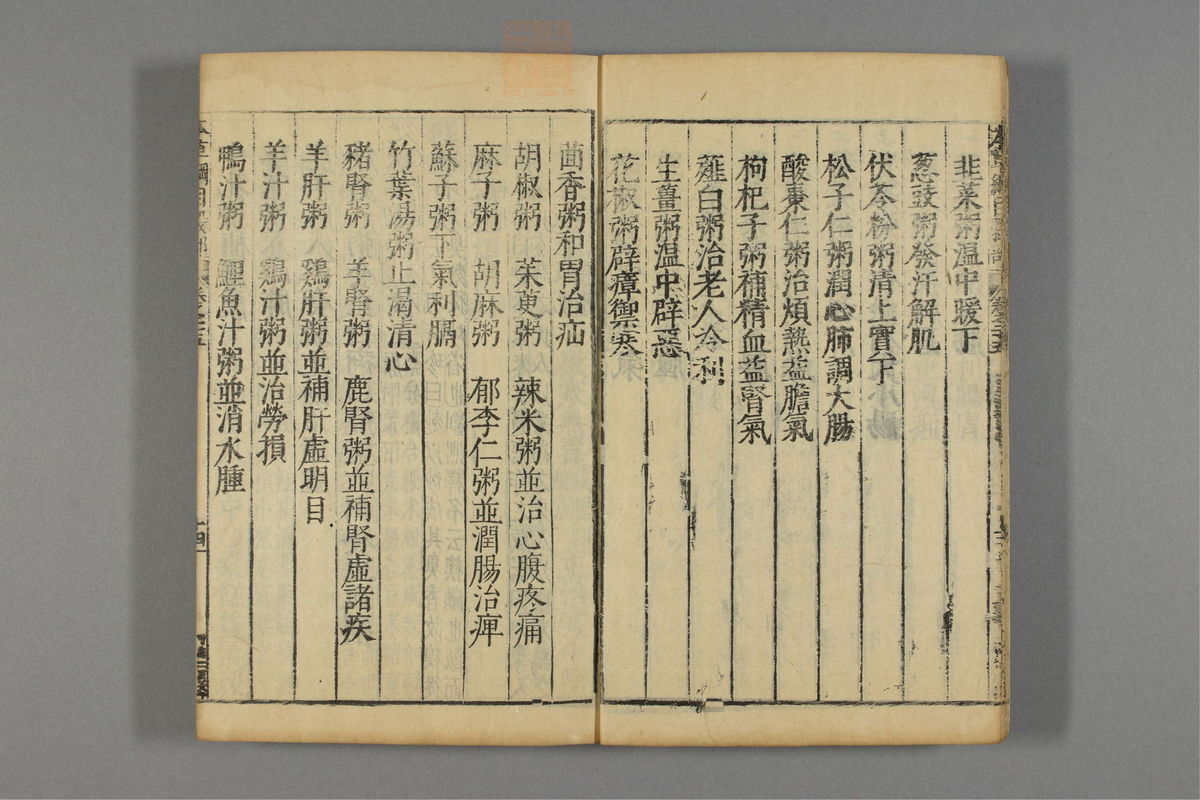 韭菜粥温中暖下
葱豉粥發汗解肌
伏苓粉粥清上實下
松子仁粥潤心肺調大腸
酸棗仁粥治煩熱益膽氣
枸杞子粥補精血益腎氣
薤白粥治老人冷利
生薑粥温中辟惡
花椒粥辟瘴禦寒
茴香粥和胃治疝
胡椒粥 茱萸粥 辣米粥並治心腹疼痛
麻子粥 胡麻粥 郁李仁粥並潤腸治痺
蘇子粥下氣利膈
竹葉湯粥止渴清心
豬腎粥 羊腎粥 鹿腎粥並補腎虛諸疾
羊肝粥 鷄肝粥並補肝虛明目
羊汁粥 鷄汁粥並治勞損
鴨汁粥 鯉魚汁粥並消水腫